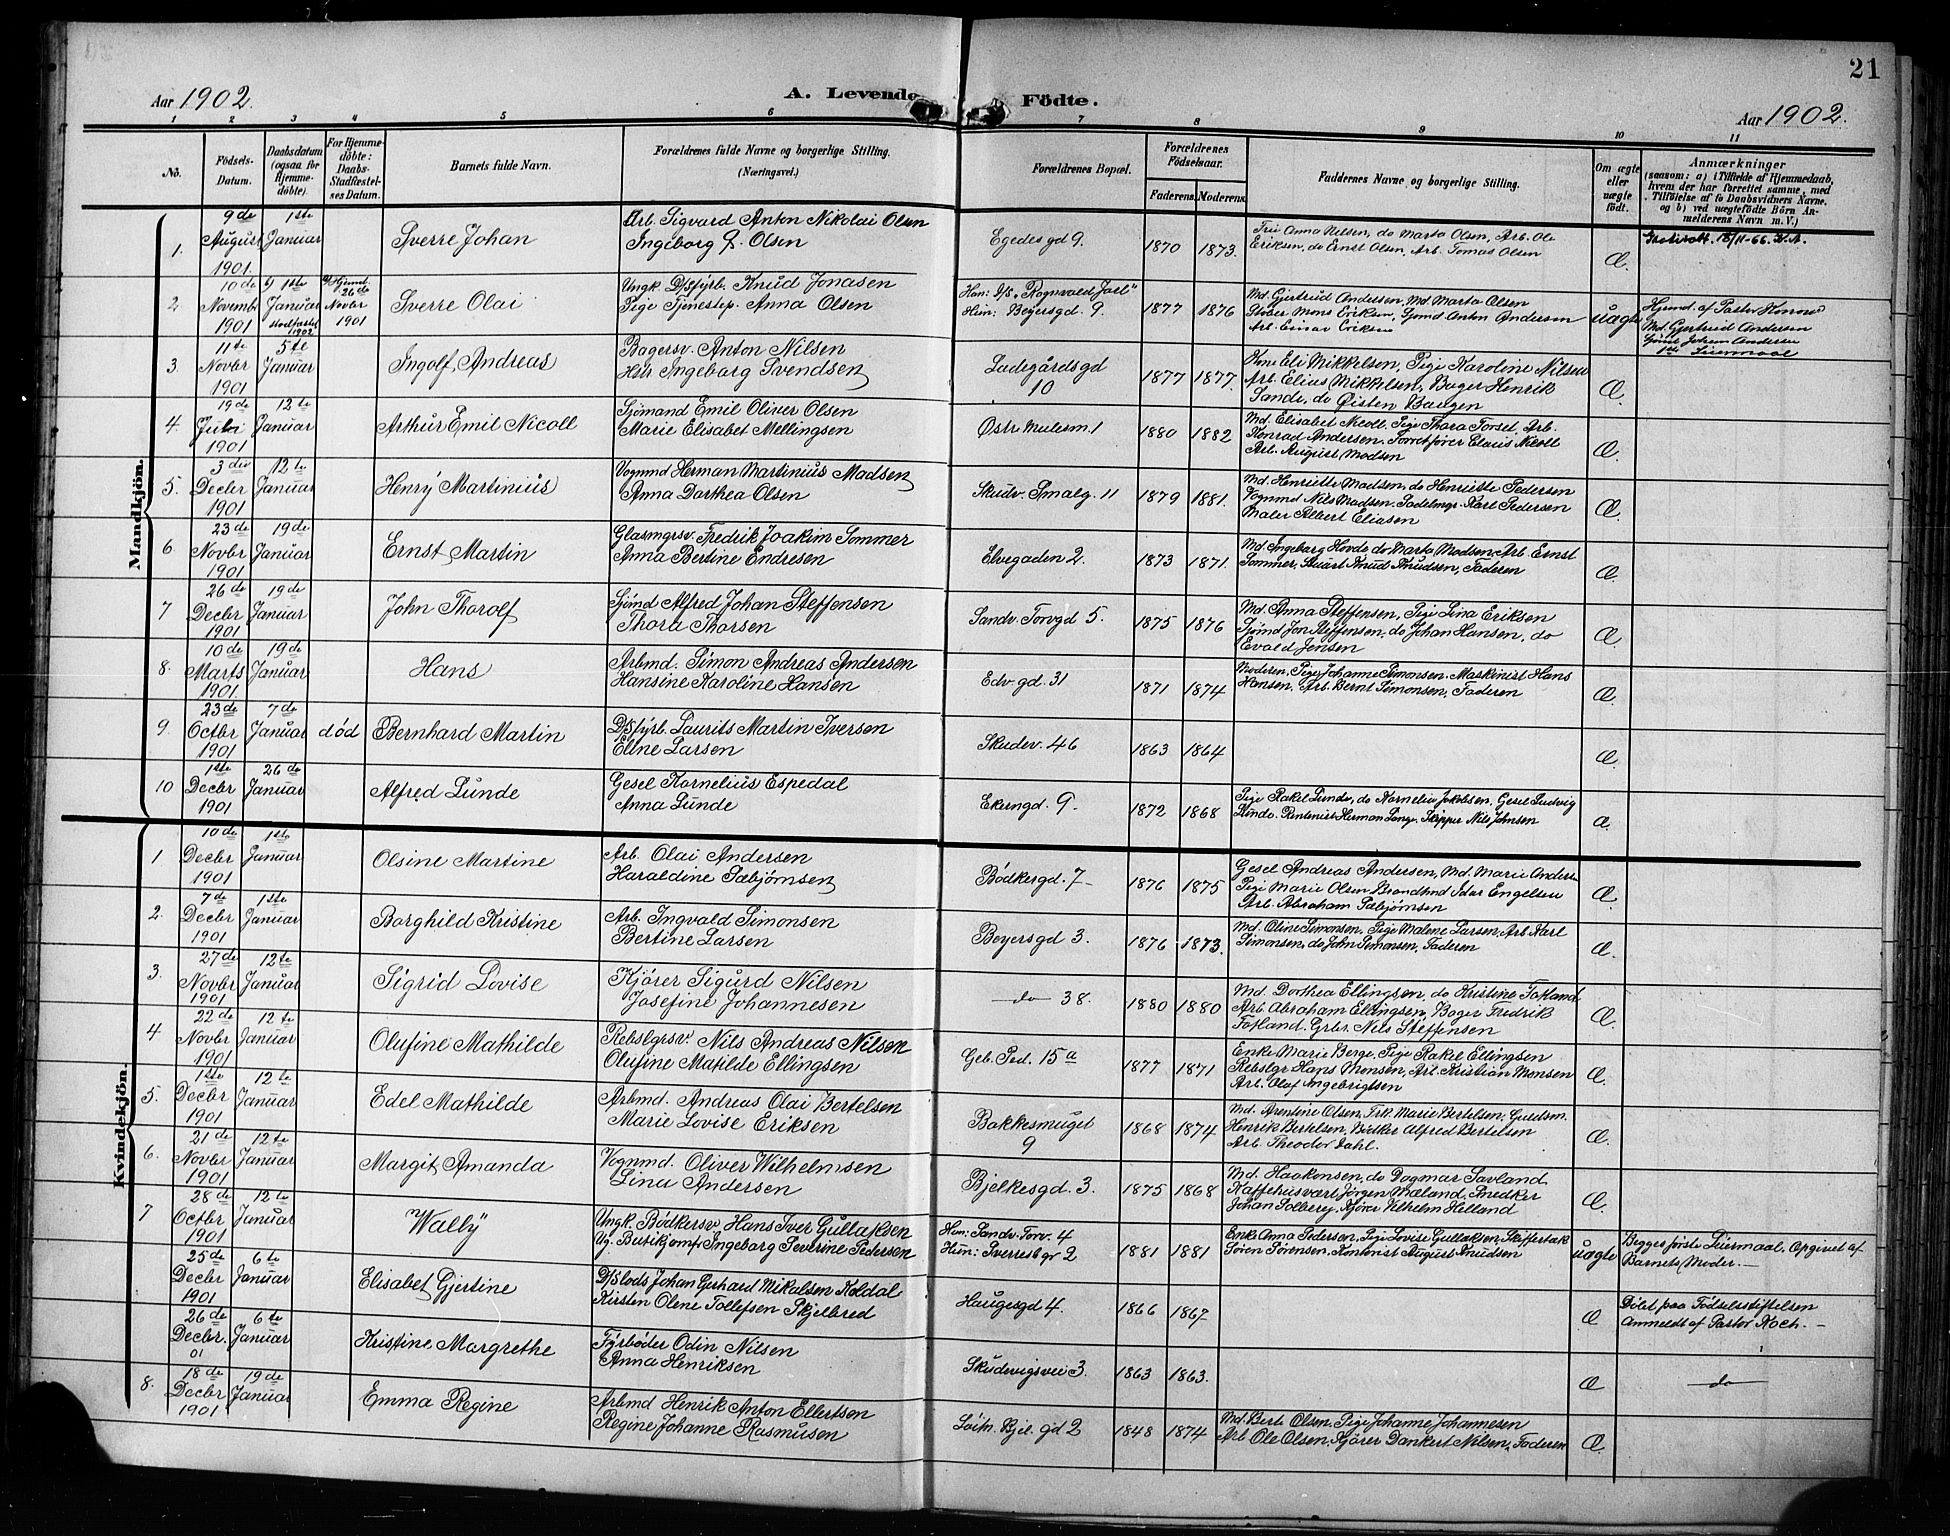 21
Aar 1902.
A. Levende Födte.
Aar 1902.
1 2 3 4 5 6 7 8 9 10 11
No.
Födsels-Datum.
Daabsdatum (ogsaa for Hjemme-döbte).
For Hjemme-döbte: Daabs-Stadfæstel-ses Datum.
Barnets fulde Navn.
Forældrenes fulde Navne og borgerlige Stilling.
(Næringsvei.)
Forældrenes Bopæl.
Forældrenes Födselsaar.
Faderens. Moderens.
Faddernes Navne og borgerlige Stilling.
Om ægte eller uægte födt.
Anmærkninger
(saasom: a) i Tilfælde af Hjemmedaab, hvem der har forrettet samme, med Tilföielse af to Daabsvidners Navne. og b) ved uægtefödte Börn An-melderens Navn m. V.)
Mandkjön.
1. 9de August 1901. 1ste Januar Sverre Johan Arb. Sigvard Anton Nikolai Olsen
Ingeborg J. Olsen Egedesgd 9. 1870 1873. Fru Anna Nilsen, do Marta Olsen, Arb. Ole
Eriksen, do Ernst Olsen, Arb. Tomas Olsen Æ.
2 10de Novembr 1901 1ste Januar stadfæstet 1902 Hjemd. 26de Novbr 1901 Sverre Olai Ungk. D/sfyrb. Knud Jonasen
Pige Tjenestep. Anna Olsen Han: D/s "Rognvald Jarl"
Hun: Beyersgd. 9. 1877 1876 Md. Gjertrud Andersen, Md Marta Olsen
Støber Mons Eriksen, Sjømd Anton Andersen
Arb. Einar Eriksen uægte Hjemd. af Pastor
Md. Gjertrud Andersen
Sjømd Johan Andersen
1ste Leiermaal
3. 11te Novbr 1901 5te Januar Ingolf Andreas Bagersv. Anton Nilsen
Ingeborg Svendsen Ladegårdsgd 10 1877 1877. Eli Mikkelsen, Pige Karoline Nilsen
Arb. Elias Mikkelsen, Bager Henrik
Sande, do Øisten Baugen Æ.
4. 19de Juli 1901 12te Januar Arthur Emil Nicoll Sjømand Emil Oliver Olsen
Marie Elisabet Mellingsen Østr Mulesm. 1 1880 1882 Md. Elisabet Nicoll Pige Thora Torset, Arb.
Konrad Andersen, Forretfører Claus Nicoll
Arb. August Madsen Æ.
5. 3die Decbr 1901 12te Januar Henry Martinius Vognmd Herman Martinius Madsen
Anna Dorthea Olsen Skudv. Smalg. 11 1879 1881. Md. Henriette Madsen, do Henriette Pedersen
Vognmd Nils Madsen, Sadelmgr. Karl Pedersen
Maler Albert Eliasen Æ.
6 23de Novbr 1901 19de Januar Ernst Martin Glasmgrsv. Fredrik Joakim Sommer
Anna Bertine Endresen Elvegaden 2. 1873 1871. Md. Ingeborg Hovde, do Marta Madsen, Arb. Ernst
Sommer, Stuart Knud Knudsen, Faderen Æ.
7 26de Decbr 1901 19de Januar John Thorolf Sjømd Alfred Johan Steffensen
Thora Thorsen Sandv. Torvgd 5. 1875 1876 Md. Anna Steffensen, Pige Lina Eriksen
Sjømd Jon Steffensen, do Johan Hansen, do
Evald Jensen Æ
8. 10de Marts 1901. 19de Januar Hans Arbmd. Simon Andreas Andersen
Hansine Karoline Hansen Edv. gd. 31 1871 1874 Moderen, Pige Johanne Simonsen, Maskinist Hans
Hansen, Arb. Bernt Simonsen, Faderen Æ.
9. 23de Octbr 1901 7de Januar død Bernhard Martin D/sfyrb. Laurits Martin Iversen
Eline Larsen Skudev. 46 1863 1864 Æ.
10 1ste Decbr 1901 26de Januar Alfred Lunde Gesel Kornelius Espedal
Anna Lunde Ekerngd. 9. 1872 1868 Pige Rakel Lunde, do Kornelia Jakobsen, Gesel Ludvig
Lunde, Rentenist Herman Lange, Skipper Nils Johnsen Æ.
Kvindekjön.
1 10de Decbr 1901 1ste Januar Olsine Martine Arb. Olai Andersen
Haraldine Sæbjørnsen Bødkergd. 7 1876 1875 Gesel Andreas Andersen, Md. Marie Anders
Pige Marie Olsen Brandknd Idar Engelsen
Arb. Abraham Sæbjørnsen Æ.
2. 7de Decbr 1901 1ste Januar Borghild Kristine Arb. Ingvald Simonsen
Bertine Larsen Beyersgd 3. 1876 1873. Md. Oline Simonsen, Pige Malene Larsen, Arb Karl
Simonsen, do John Simonsen, Faderen Æ.
3. 27de Novbr 1901 12te Januar Sigrid Lovise Kjører Sigurd Nilsen
Josefine Johannesen do 38. 1880 1880 Md. Dorthea Ellingsen, do Kristine Fotland
Arb. Abraham Ellingsen, Bager Fredrik
Fotland. Grbr. Nils Steffensen Æ.
4 22de Novbr 1901 12te Januar Olufine Mathilde Rebslgrsv. Nils Andreas Nilsen
Olufine Matilde Ellingsen Geb. Ped. 15a 1877 1871 Enke Marie Berge, Pige Rakel Ellingsen
Rebslgr Hans Monsen, Arb. Kristian Monsen
Arb. Olaf Ingebrigtsen Æ.
5. 1ste Decbr 1901 12te Januar Edel Mathilde Arbmd. Andreas Olai Bertelsen
Marie Lovise Eriksen Bakkesmuget 9 1868 1874 Md. Arentine Olsen, Frk. Marie Bertelsen, Guldsm.
Henrik Bertelsen, Bødker Alfred Bertelsen
Arb. Theodor Dahl. Æ.
6. 21de Novbr 1901 12te Januar Margit Amanda Vognmd. Oliver Wilhelmsen
Lina Andersen Bjelkesgd. 3. 1875 1868 Md. Haakonsen, do Dagmar Savland
Kaffehusvært Jørgen Mæland, Snedker
Johan Solberg, Kjører Vilhelm Helland Æ.
7 28de Octbr 1901 12te Januar Wally Ungk. Bødkersv. Hans Iver Gullaksen
Ug. Butikjomf. Ingeborg Severine Pedersen Han: Sandv. Torv. 4
Hun: Sverresgr 2 1881 1881 Enke Anna Pedersen, Pige Lovise Gullaksen, Skiffertæk
Søren Sørensen, Kontorist August Knudsen uægte Begges første Leiermaal. Opgivet af
Barnets Moder.
25de Decbr 1901 6te Januar Elisabet Gjertine D/Slods Johan Gerhard Mikalsen Koldal
Kirsten Olene Tollefsen Skjelbred Haugesgd 4. 1866 1867. Æ Døbt paa Fødselsstiftelsen
Anmeldt af Pastor Koch.
26de Decbr. 01 6te Januar Kristine Margrethe Fyrbøder Odin Nilsen
Anna Henriksen Skudevigsvei 3. 1863 1863. Æ do
8. 18de Decbr 1901 19de Januar Emma Regine Arbmd Henrik Anton Ellertsen
Regine Johanne Rasmusen Løitn. Bjel. gd 2 1848 1874 Md. Berte Olsen, Pige Johanne Johannesen
Arb Ole Olsen, Kjører Dankert Nilsen, Faderen Æ.